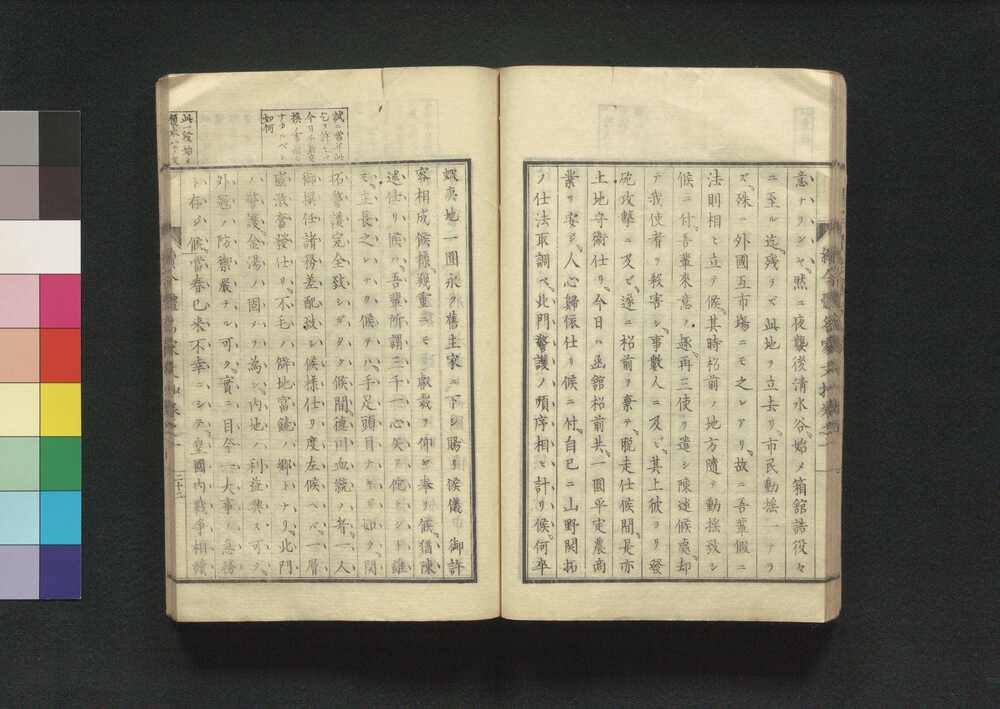 意ナリシヤ黙ニ夜襲後清水谷始メ箱館諸役々
ニ至ル迄残ラズ此地ヲ立去リ市民動揺一方ナラ
ズ殊ニ外國互市塲ニモ之レアリ故ニ吾輩假ニ
法則相ヒ立テ候其時松前ノ地方隨テ動揺致シ
候ニ付吾輩來意ノ趣再三使ヲ遣シ陳述候處却
テ我使者ヲ殺害シ事數人ニ及ビ其上彼ヨリ發
砲攻撃ニ及ビ遂ニ松前ヲ棄テ脱走仕候間長亦
土地守衛仕リ今日ハ函館松前共一圓平定農商
業ヲ安ジ人心歸依仕リ候ニ付自己ニ山野開拓
ノ仕法取調ベ北門警護ノ順序相ヒ計リ候何卒
蝦夷地一圓永ク舊主家ニ下シ賜リ候儀御許
容相成候様幾重ニモ叡裁ヲ仰ギ奉リ候猶陳
述仕リ候ハ吾輩所謂三千一心矢ヲ佗ナシト雖
モ主長之レナク候テハ手足頭目ナキガ如ク開
拓警護完全致シガタク候間德川血統ノ者一人
御撰任諸務差配致シ候様仕リ度左候ヘバ一層
盡激奮發仕リ不毛ノ僻地富饒ノ郷トナリ北門
ノ警護金湯ノ固メヲ為シ内地ノ利益興ス可シ
外冠ノ防禦嚴ナル可ク實ニ目今一大事ノ急務
ト存ジ候當春已来不幸ニシテ皇國内戰争相續
如何
三十三